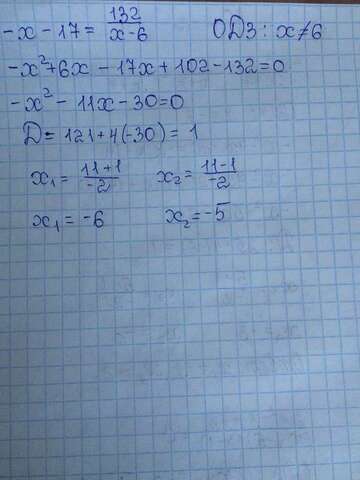 -x - 17 = 132/(x-6) ОДЗ: x≠6
-x² + 6x - 17x + 102 - 132 = 0
-x² - 11x - 30 = 0
D = 121 + 4(-30) = 1
x₁ = (11+1)/-2 x₂ = (11-1)/-2
x₁ = -6 x₂ = -5